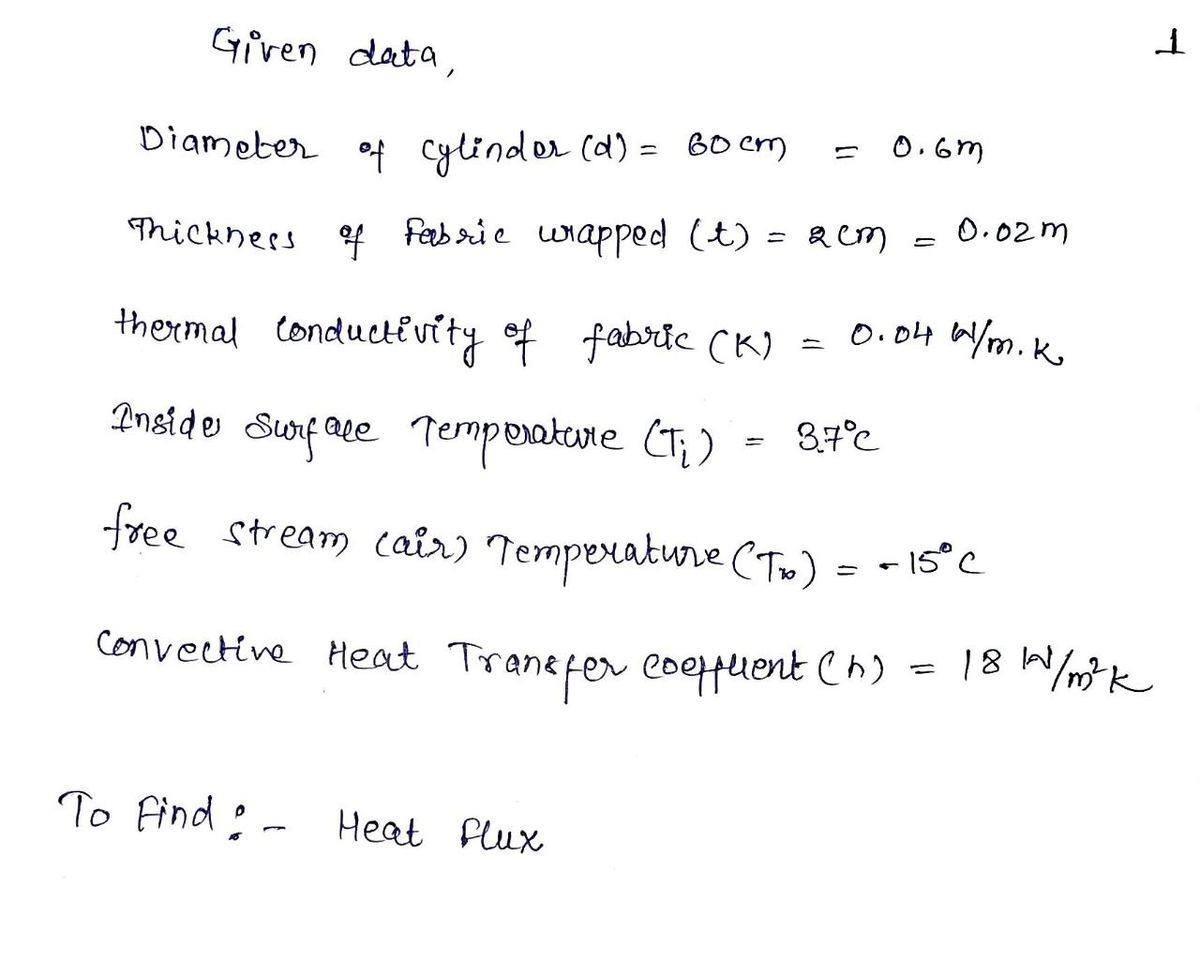 Given data,
1
Diameter of cylinder (d) = 60 cm = 0.6m
Thickness of fabric wrapped (t) = 2 cm = 0.02 m
thermal conductivity of fabric (K) = 0.04 W/m.K
Inside Surface Temperature (Ti) = 37°C
free stream (air) Temperature (T∞) = -15°C
Convective Heat Transfer coeffuent (h) = 18 W/m²K
To Find :- Heat flux